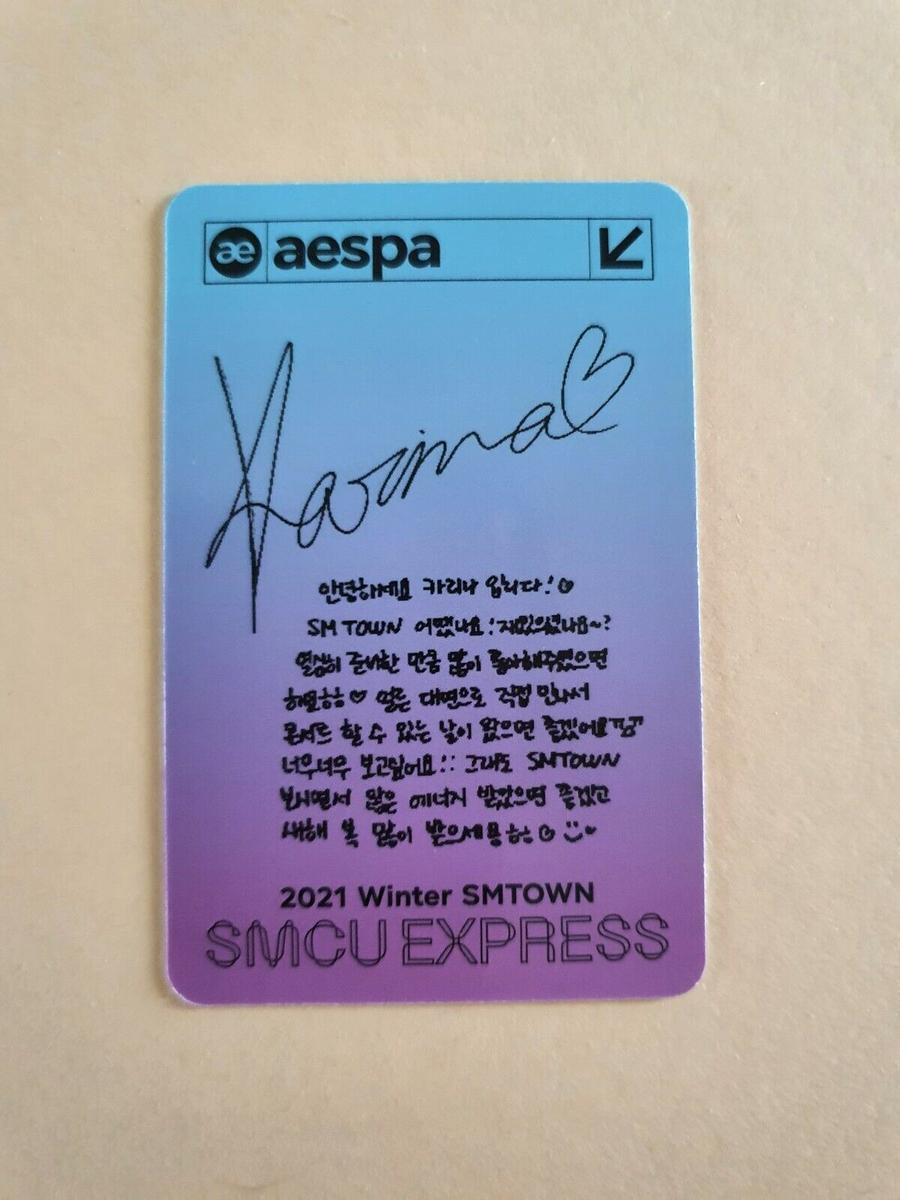 æ aespa
Karina♡
안녕하세요 카리나 입니다!♡
SMTOWN 어땠나요! 재밌으셨나요~?
열심히 준비한 만큼 많이 좋아해주셨으면
해요ㅎㅎ♡ 얼른 대면으로 직접 만나서
콘서트 할 수 있는 날이 왔으면 좋겠어요
너무너무 보고싶어요!! 그래도 SMTOWN
보시면서 많은 에너지 받았으면 좋겠고
새해 복 많이 받으세용ㅎㅎ♡
2021 Winter SMTOWN
SMCU EXPRESS